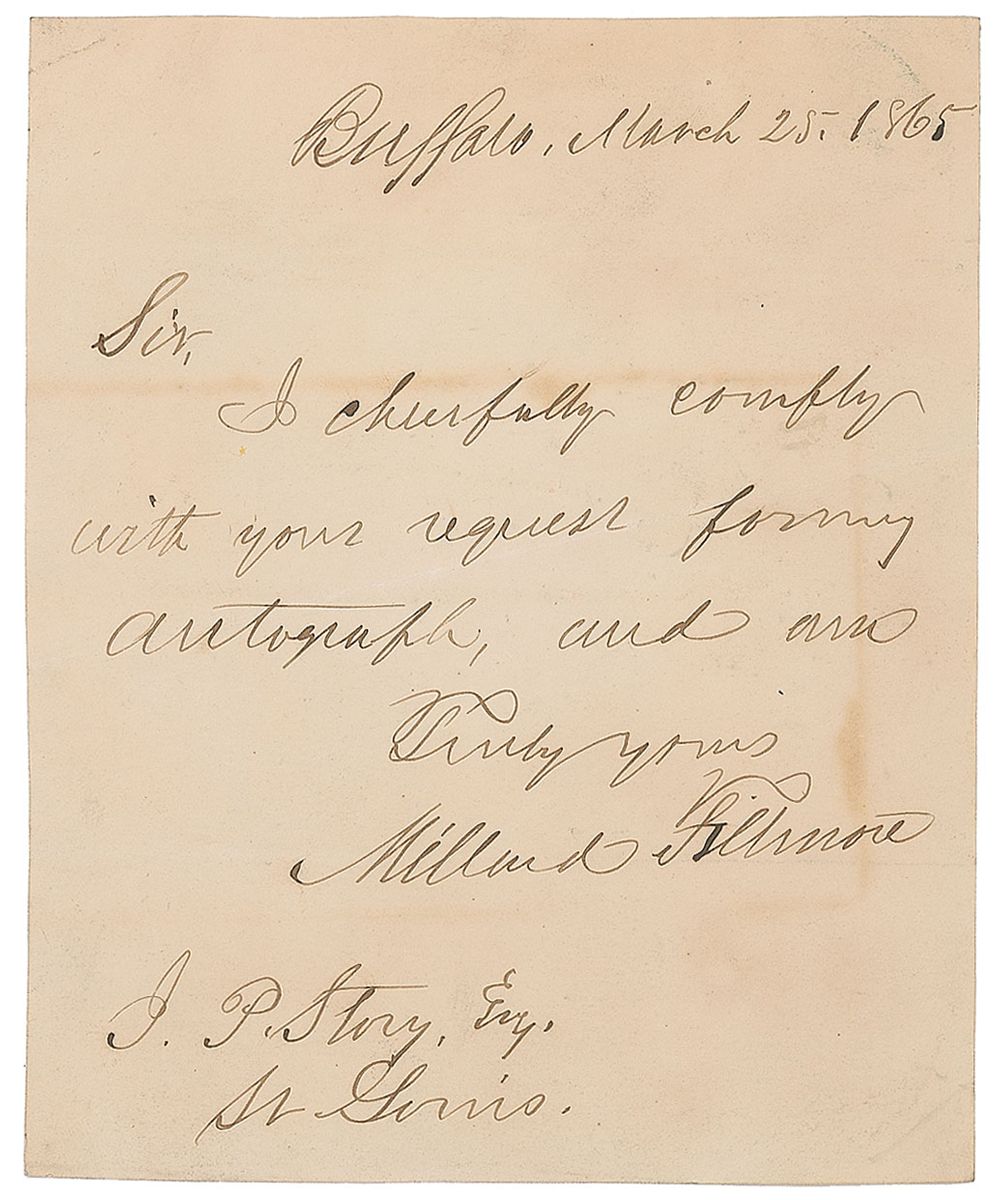 Buffalo, March 25. 1865
Sir,
I cheerfully comply
with your request for my
autograph, and am
Truly yours
Millard Fillmore
J. P. Story, Esq.
St Louis.